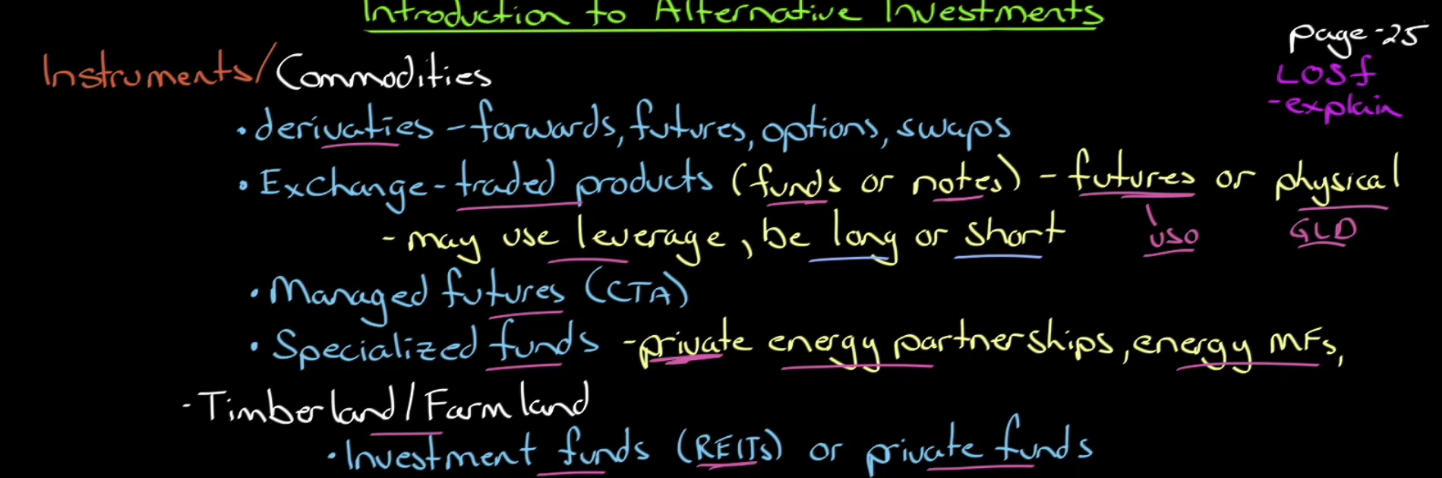 Introduction to Alternative Investments
page-25
Instruments/Commodities
LOS f
-explain
• derivaties - forwards, futures, options, swaps
• Exchange-traded products (funds or notes) - futures or physical
- may use leverage, be long or short
USO
GLD
• Managed futures (CTA)
• Specialized funds - private energy partnerships, energy MFs,
- Timberland/Farmland
• Investment funds (REITs) or private funds